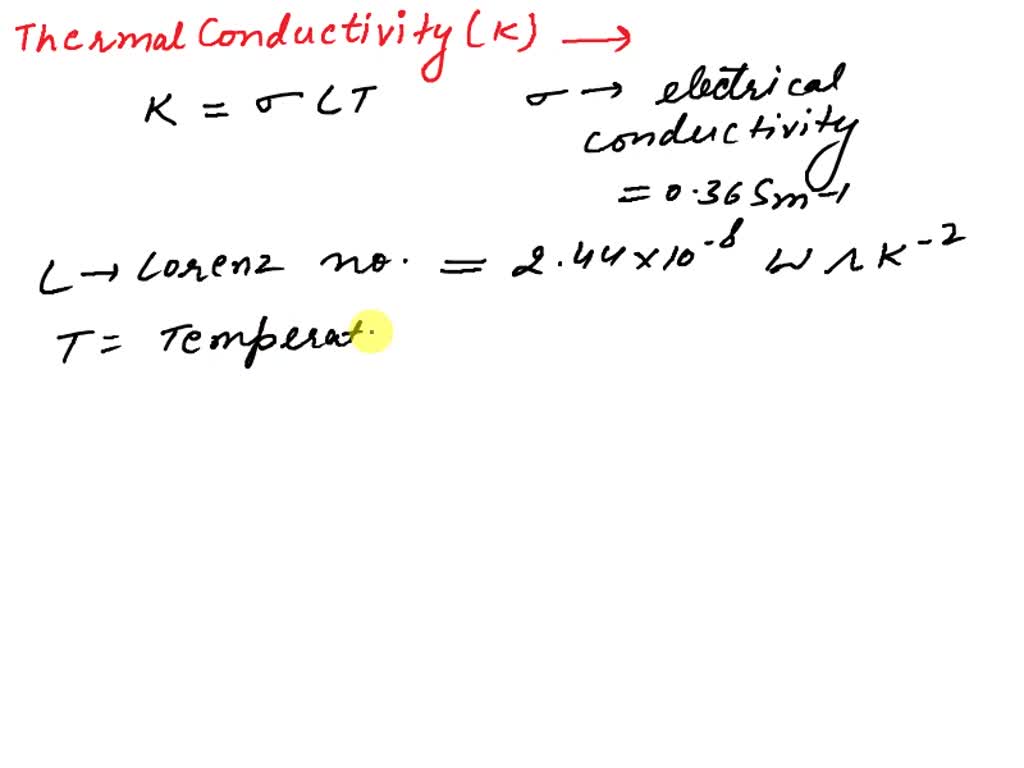 Thermal Conductivity (K) →
K = σ L T
σ → electrical
conductivity
= 0.36 Sm⁻¹
L → Lorenz no. = 2.44 × 10⁻⁸ W Λ K⁻²
T = Temperat